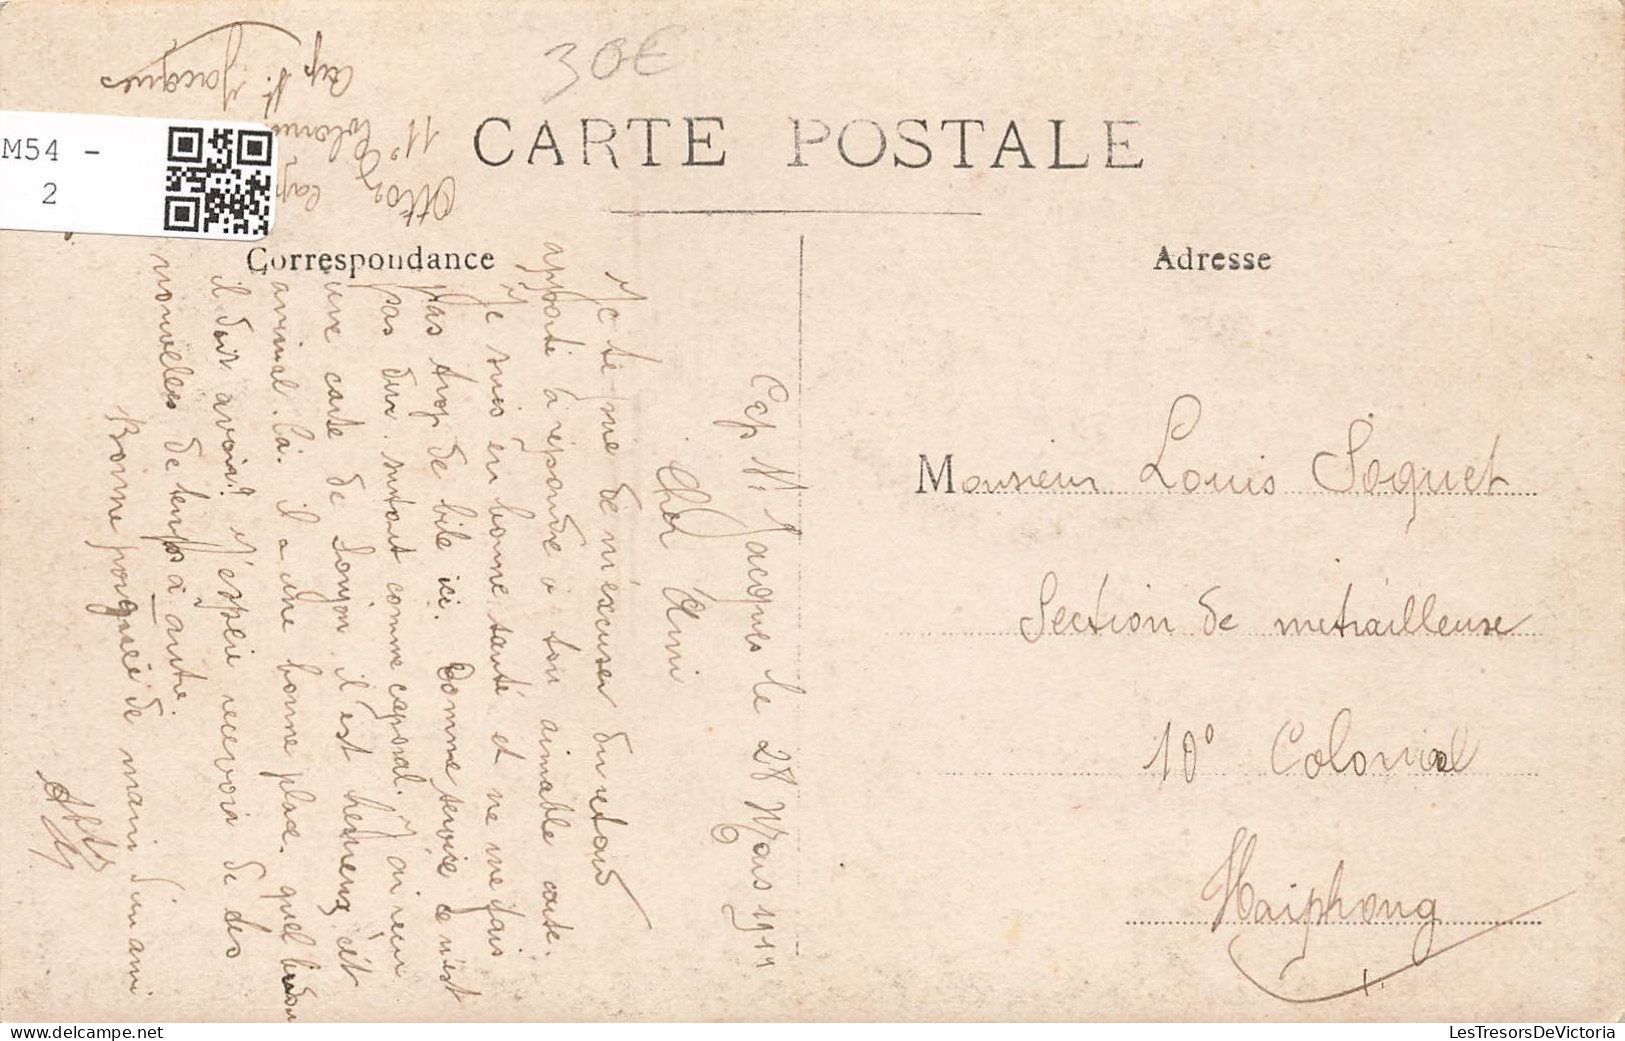 30€
CARTE POSTALE
M54 -
2
Correspondance
Adresse
Cap St Jacques le 28 Mars 1919
Cher Ami
Je te prie de m'excuser du retard
apporté à répondre à ton aimable carte.
Je suis en bonne santé et ne me fais
pas trop de bile ici. Comme service ce n'est
pas dur surtout comme caporal. J'ai reçu
une carte de Sonjon il est heureux cet
animal là. il a une bonne place. quel
il doit avoir! J'espère recevoir de des
nouvelles de temps à autre.
Bonne poignée de main d'un ami
11e Colonial
Cap St. Jacques
Monsieur Louis Soquet
Section de mitrailleuse
10e Colonial
Haiphong
LesTresorsDeVictoria